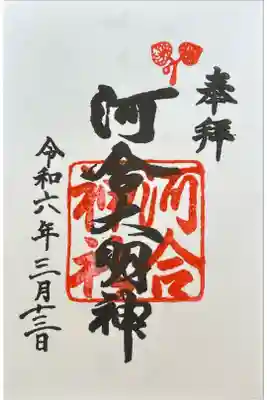 奉拝
河合大明神
河合神社
令和六年三月十三日